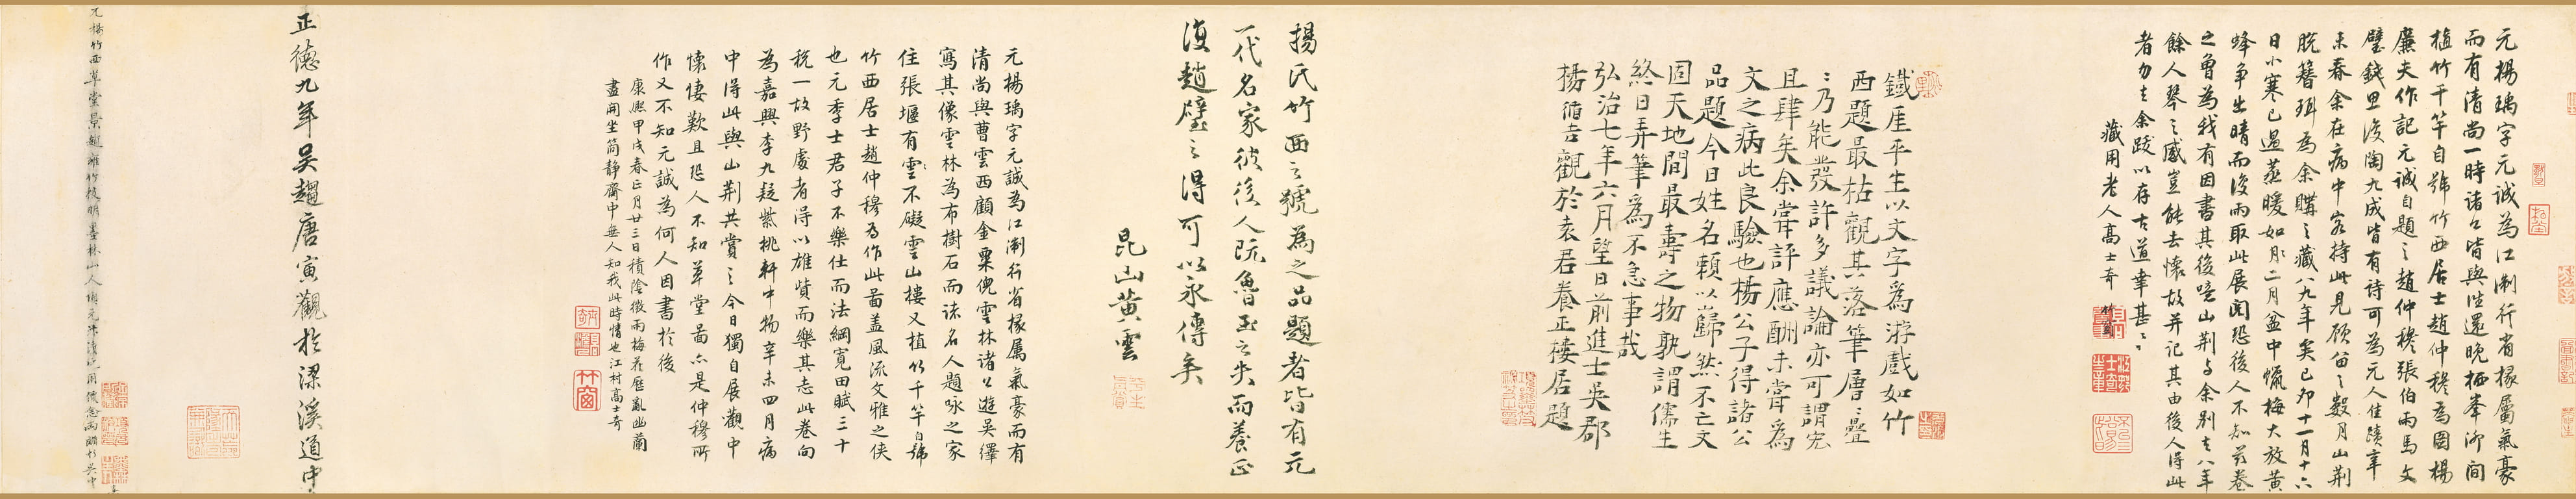 元楊瑀字元誠為江淛行省掾屬氣豪
而有清尚一時諸公皆與往還晚栖峯泖間
植竹千竿自號竹西居士趙仲穆為圖楊
廉夫作記元誠自題之趙仲穆張伯雨馬文
璧錢思復陶九成皆有詩可為元人佳蹟辛
未春余在病中客持此見顧留之數月山荊
脫簪珥為余購之藏八九年矣己卯十一月十六
日小寒已過蒸暖如月二月盆中蠟梅大放黃
蜂爭出晴而後雨取此展閱恐後人不知茲卷
之曾為我有因書其後噫山荊與余別去八年
餘人琴之感豈能去懷故并記其由後人得此
者勿去余跋以存古道幸甚幸甚
藏用老人高士奇
鐵厓平生以文字為游戲如竹
西題最枯觀其落筆層層疊
疊乃能發許多議論亦可謂宏
且肆矣余嘗評應酬未嘗為
文之病此良驗也楊公子得諸公
品題今日姓名賴以巋然不亡文
固天地間最壽之物孰謂儒生
終日弄筆為不急事哉
弘治七年六月望日前進士吳郡
楊循吉觀於袁君養正樓居題
楊氏竹西之號為之品題者皆有元
一代名家彼後人既魯玉之失而養正
復趙璧之得可以永傳矣
崑山黃雲
元楊瑀字元誠為江淛行省掾屬氣豪而有
清尚與曹雲西顧金粟倪雲林諸公遊吳繹
寫其像雲林為布樹石而諸名人題咏之家
住張堰有雲不礙雲山樓又植竹千竿自號
竹西居士趙仲穆為作此圖蓋風流文雅之俠
也元季士君子不樂仕而法網寬田賦三十
稅一故野處者得以雄貲而樂其志此卷向
為嘉興李九疑紫桃軒中物辛未四月病
中得此與山荊共賞之今日獨自展觀中
懷悽歎且恐人不知草堂圖六是仲穆所
作又不知元誠為何人因書於後
康熙甲戌春正月廿三日積陰微雨梅花歷亂幽蘭
盡開坐簡靜齋中無人知我此時情也江村高士奇
正德九年吳趨唐寅觀於梁溪道中
元楊竹西草堂景趙雍竹枝明墨林山人項元汴